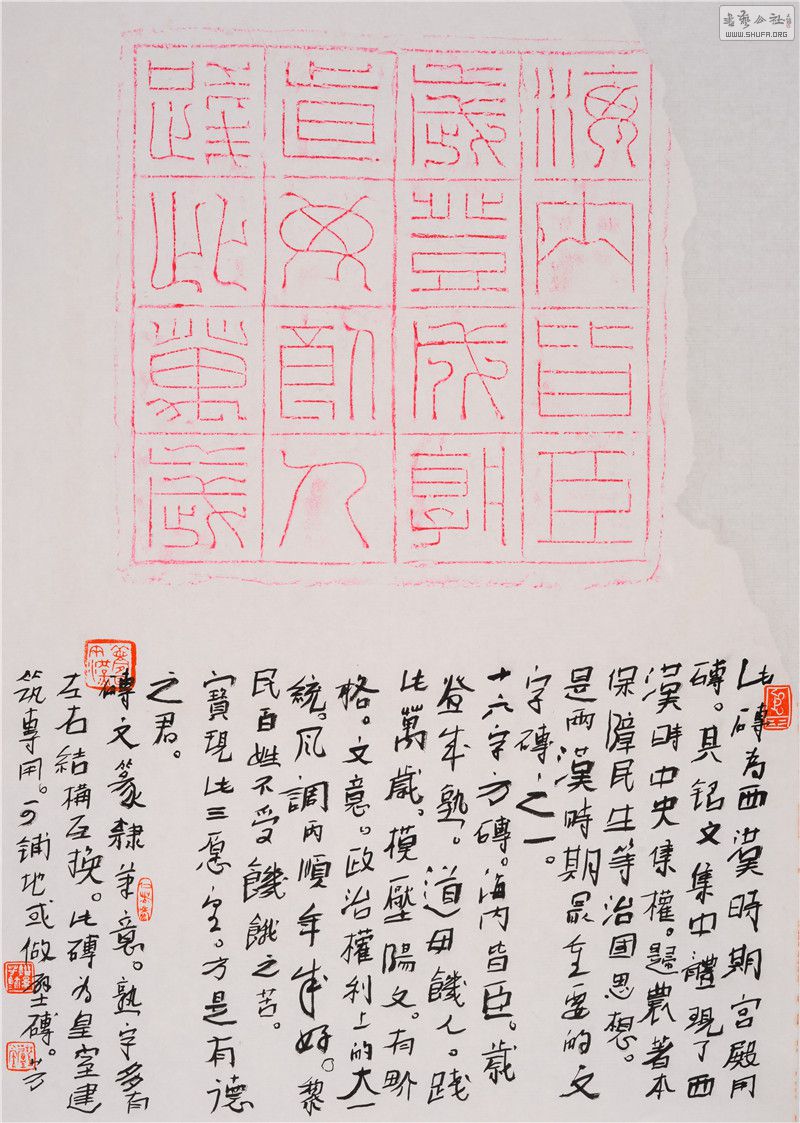 書藝公社
WWW.SHUFA.ORG
海内皆臣
歲登成孰
道毋飢人
踐此萬歲
此磚為西漢時期宮殿用
磚。其銘文集中體現了西
漢時中央集權。歸農著本
保障民生等治國思想。
是兩漢時期最主要的文
字磚之一。
十六字方磚。海内皆臣。歲
登成熟。道毋饑人。踐
此萬歲。模壓陽文。有界
格。文意。政治權利上的大一
統。風調雨順年成好。黎
民百姓不受饑餓之苦。
實現此三愿望。方是有德
之君。
磚文篆隸筆意。熟字多有
左右結構互換。此磚為皇室建
筑專用。可鋪地或做壁磚。